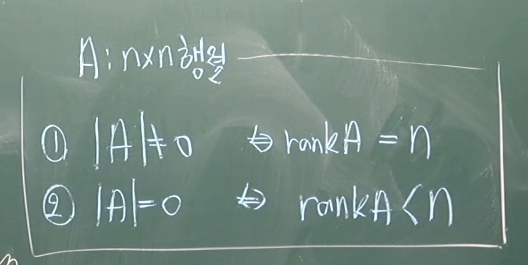 A : n×n 행렬
① |A|≠0 ⇔ rankA = n
② |A|=0 ⇔ rankA < n